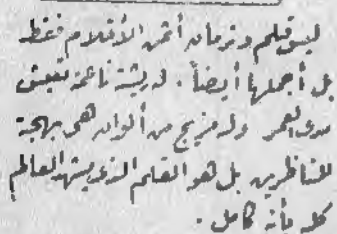 ليس قلم وترمان أثمن الأقلام فقط
بل أجملها أيضاً. له ريشة ناعمة تعيش
مدى العمر وله مزيج من ألوان هى بهجة
للناظرين بل هو القلم الذى يشهد العالم
كله بأنه كامل.